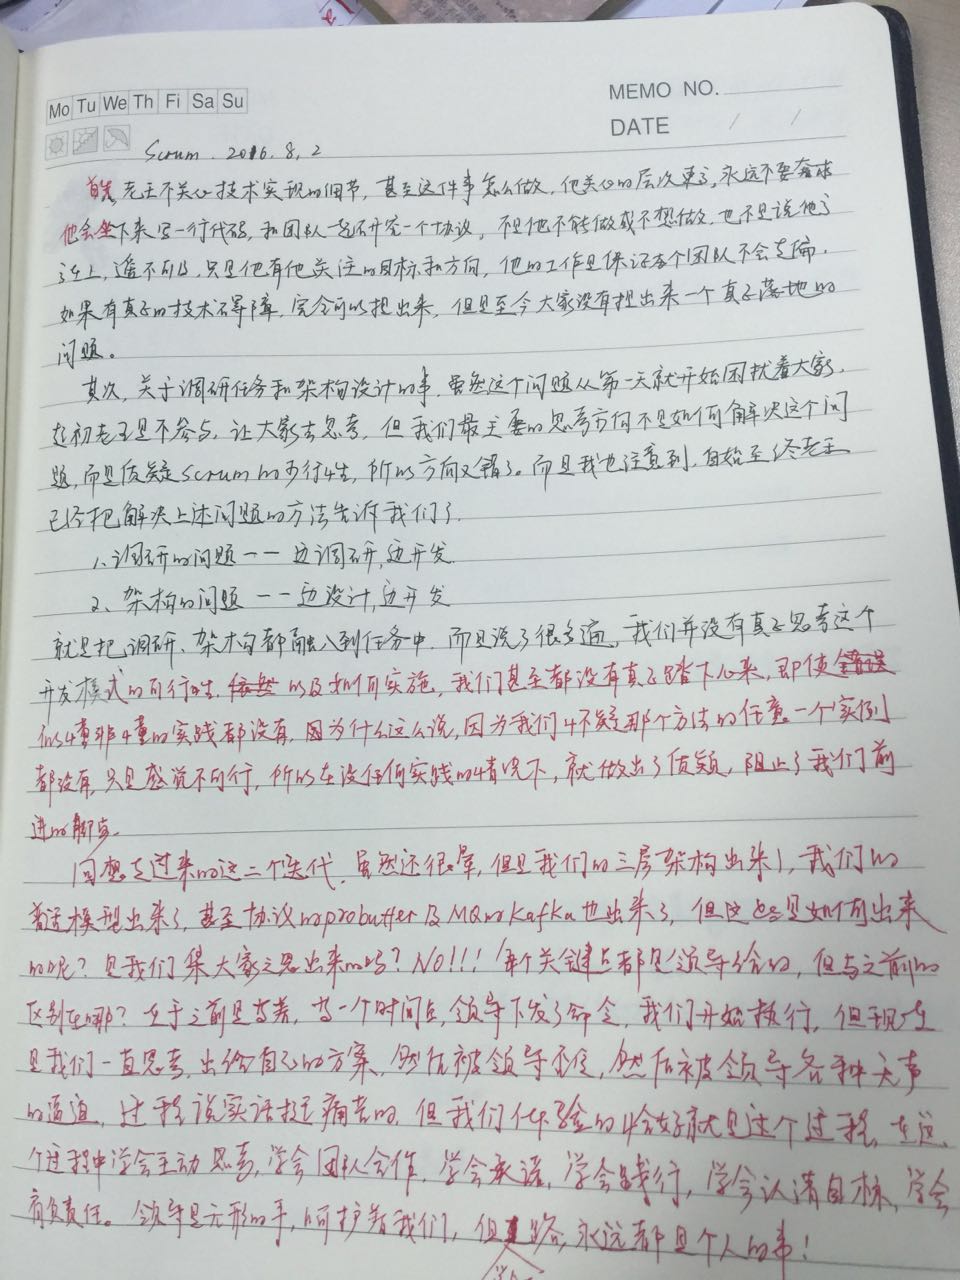 Mo Tu We Th Fi Sa Su
MEMO NO.
DATE / /
Scrum. 2016.8.2
首先 老王不关心技术实现的细节,甚至这件事怎么做,他关心的层次更高,永远不要奢求
他会坐下来写一行代码,和团队一起研究一个协议,不是他不能做或不想做,也不是说他高高
在上,遥不可及,只是他有他关注的目标和方向,他的工作是保证各个团队不会走偏.
如果有真正的技术石导障,完全可以提出来,但是至今大家没有提出来一个真正落地的
问题。
其次,关于调研任务和架构设计的事,虽然这个问题从第一天就开始困扰着大家,
起初老王是不参与,让大家去思考,但我们最主要的思考方向不是如何解决这个问
题,而是质疑Scrum的可行性,所以方向又错了。而且我也注意到,自始至终老王
已经把解决上述问题的方法告诉我们了.
1、调研的问题 —— 边调研,边开发.
2、架构的问题 —— 边设计,边开发
就是把调研、架构都融入到任务中,而且说了很多遍,我们并没有真正思考这个
开发模式的可行性,以及如何实施,我们甚至都没有真正踏下心来,即使
似懂非懂的实践都没有,因为什么这么说,因为我们怀疑那个方法的任意一个实例
都没有,只是感觉不可行,所以在没任何实践的情况下,就做出了质疑,阻止了我们前
进的脚步.
回想走过来的这二个迭代,虽然还很晕,但是我们的三层架构出来了,我们的
模型出来了,甚至协议的probuffer及MQ的Kafka也出来了,但这些是如何出来
的呢?是我们集大家之思出来的吗?NO!!!每个关键点都是领导给的,但与之前的
区别在哪?在于之前是等着,等一个时间点,领导下发了命令,我们开始执行,但现在
是我们一直思考,出给自己的方案,然后被领导否定,然后被领导各种
的逼迫,过程说实话挺痛苦的,但我们体验的恰好就是这个过程,在这
个过程中学会主动思考,学会团队合作,学会承诺,学会践行,学会认清目标,学会
肩负责任。领导是无形的手,呵护着我们,但路,永远都是个人的事!